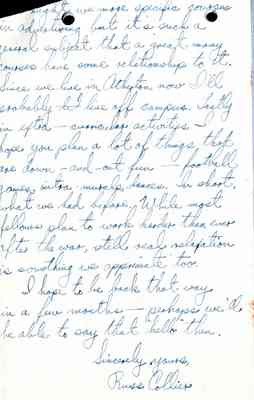 might use more specific courses
in advertising but it's such a
general subject that a great many
courses have some relationship to it.
Since we live in now I'll
probably live off campus. Lastly
in extra-curricular activities I
hope you plan a lot of things that
are down-and-out fun — football
games, intra-murals, dances. In short,
what we had before. While most
fellows plan to work harder than ever
after the war, still real relaxation
is something we appreciate too.
I hope to be back that way
in a few months — perhaps we'll
be able to say that hello then.
Sincerely yours,
Russ Collier